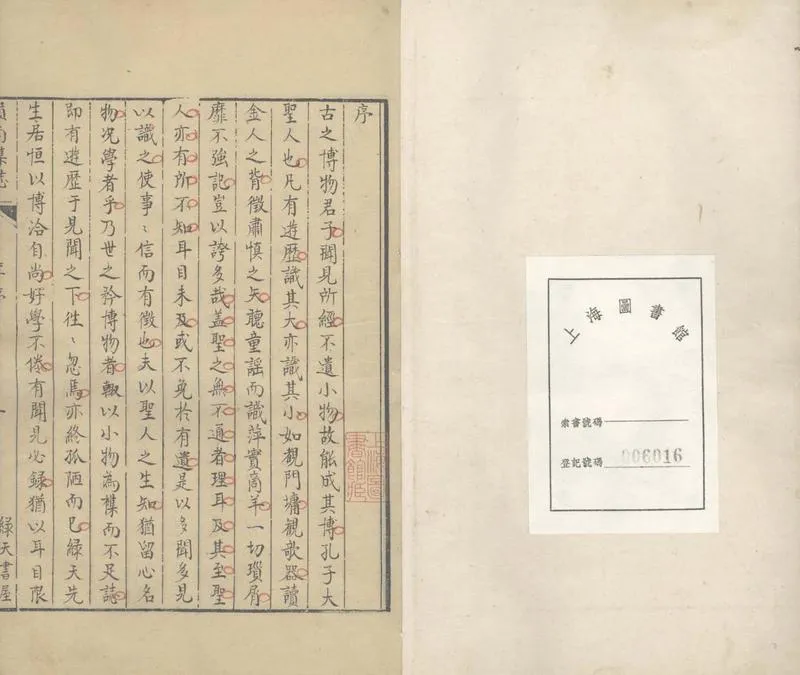 上海圖書館
索書號碼
登記號碼 006016
序
古之博物君子聞見所經不遺小物故能成其博孔子大
聖人也凡有遊歷識其大亦識其小如觀門墉觀歌器讀
金人之背徵肅慎之矢聽童謡而識萍實商羊一切瑣屑
靡不強記豈以誇多哉盖聖之無不通者理耳及其至聖
人亦有所不知耳目未及或不免於有遺是以多聞多見
以識之使事ヽ信而有徵也夫以聖人之生知猶留心名
物况學者乎乃世之矜博物者輙以小物為而不足誌
即有遊歷于見聞之下徃ヽ忽焉亦終孤陋而已緑天先
生居恒以博洽自尚好學不倦有聞見必録猶以耳目限
緑天書屋